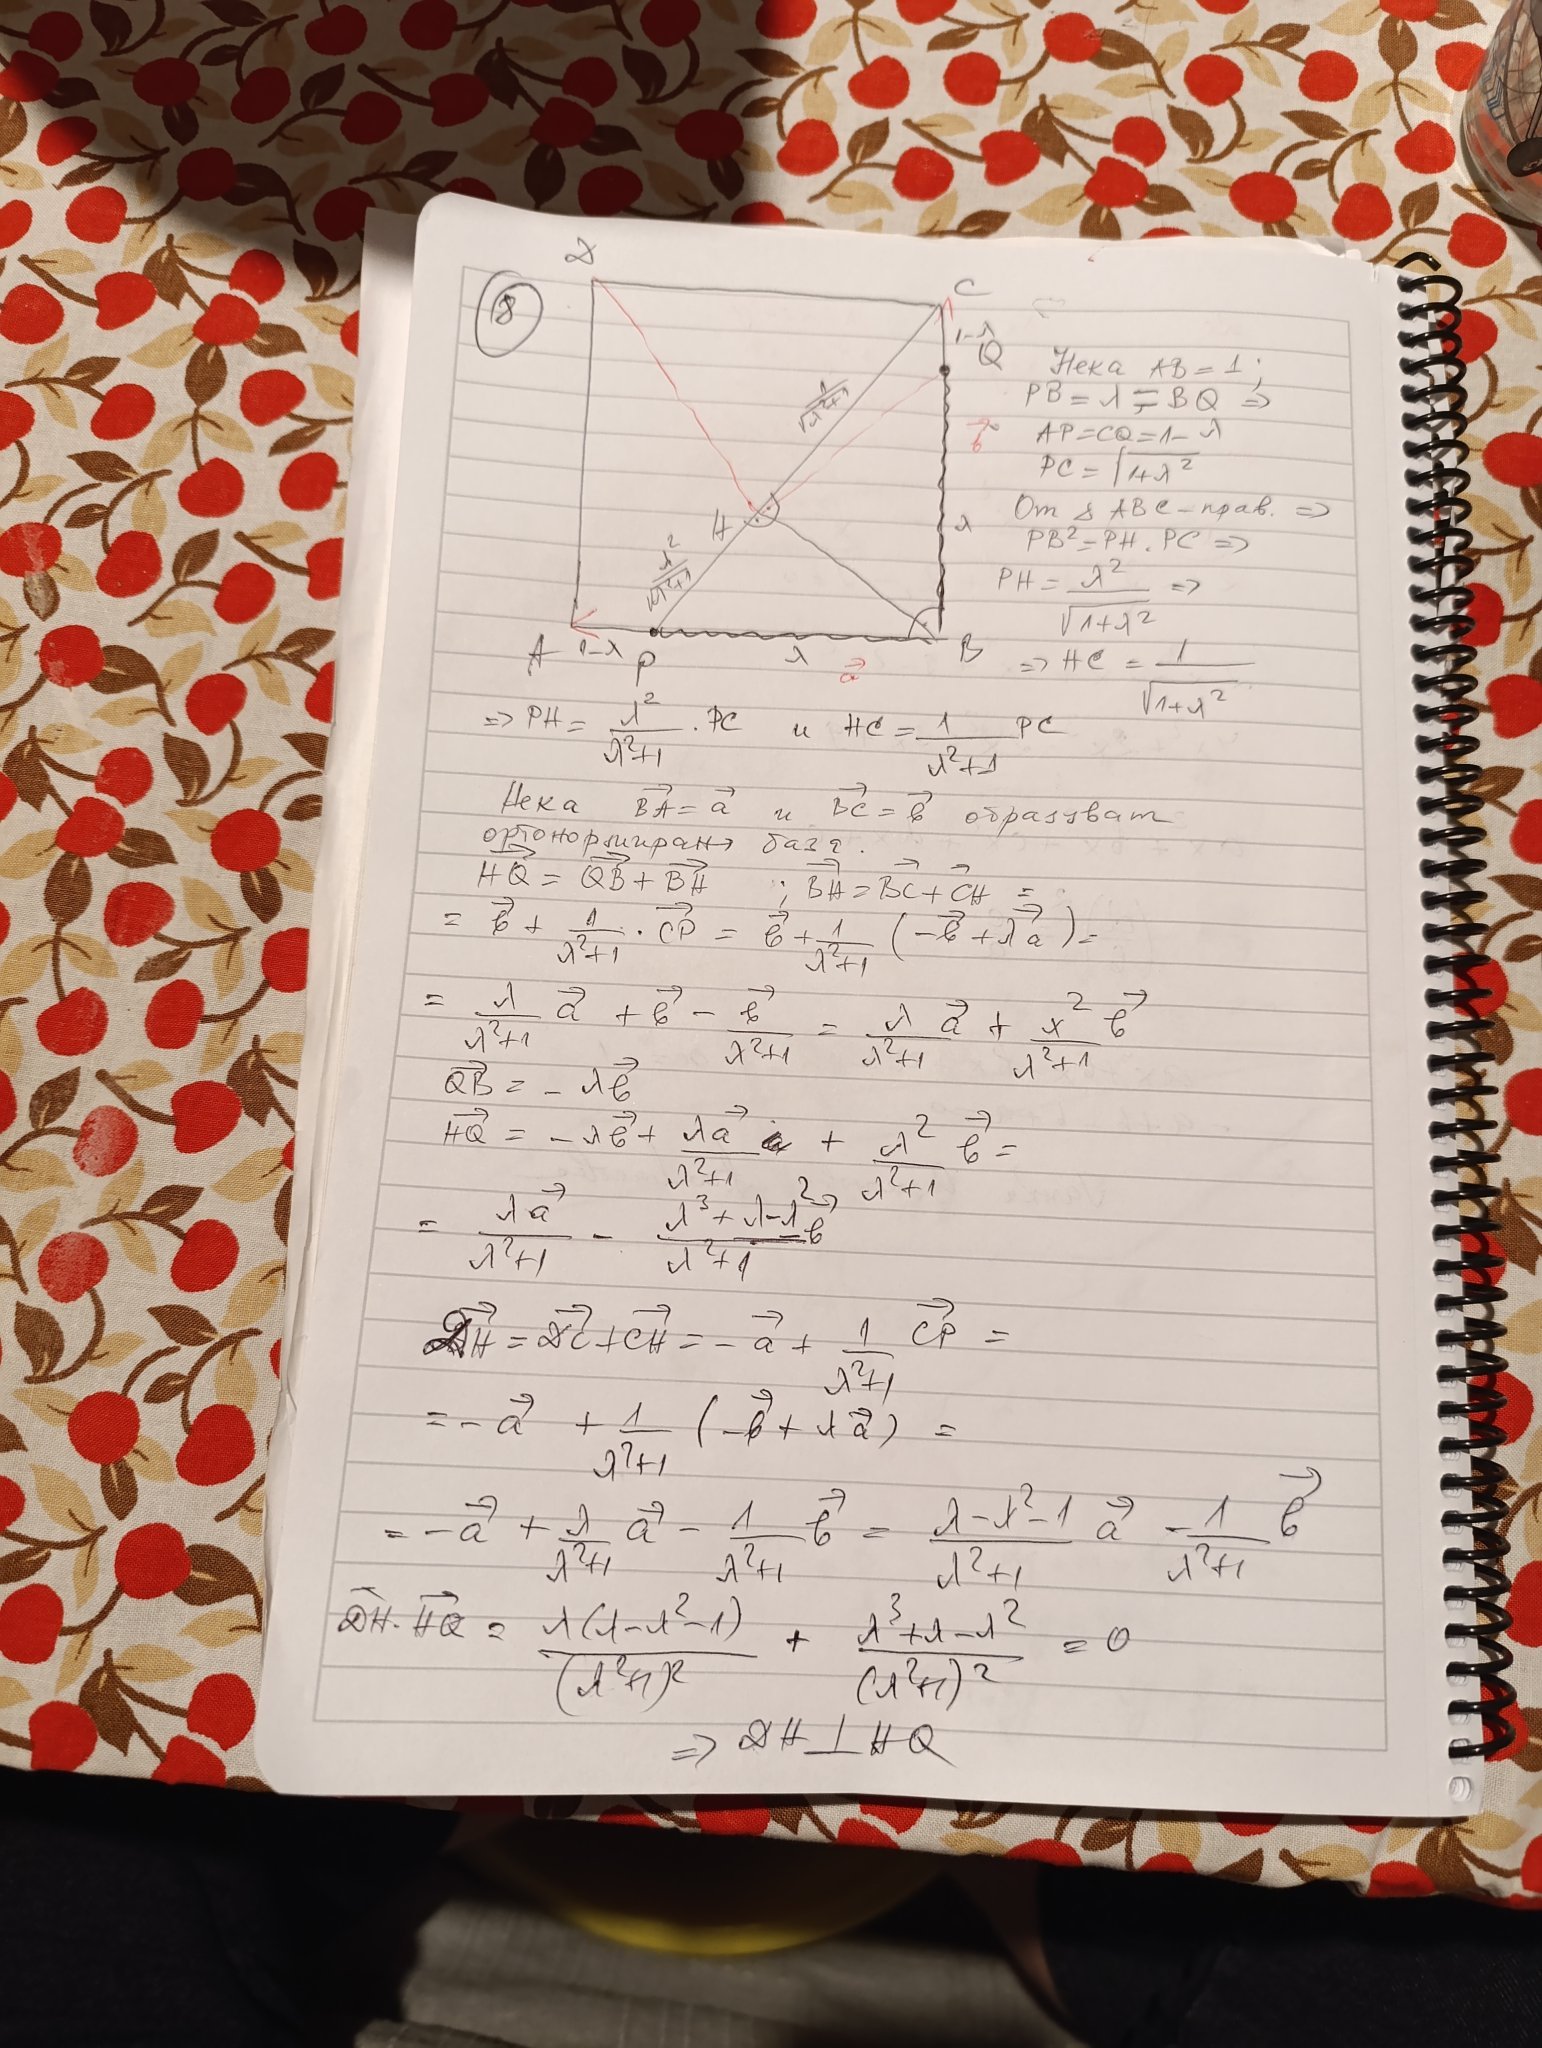 8
D
C
1-λ
Q
λ/√(λ²+1)
b⃗
H
λ
λ²/√(λ²+1)
A 1-λ P λ B
a⃗
Нека AB = 1;
PB = λ = BQ =>
AP = CQ = 1-λ
PC = √(1+λ²)
От △ ABC - прав. =>
PB² = PH . PC =>
PH = λ²/√(1+λ²) =>
=> HC = 1/√(1+λ²)
=> PH = λ²/(λ²+1) . PC и HC = 1/(λ²+1) PC
Нека BA⃗ = a⃗ и BC⃗ = b⃗ образуват
ортонормирана база.
HQ⃗ = QB⃗ + BH⃗ ; BH⃗ = BC⃗ + CH⃗ =
= b⃗ + 1/(λ²+1) . CP⃗ = b⃗ + 1/(λ²+1) (-b⃗ + λa⃗) =
= λ/(λ²+1) a⃗ + b⃗ - b⃗/(λ²+1) = λ/(λ²+1) a⃗ + λ²/(λ²+1) b⃗
QB⃗ = - λb⃗
HQ⃗ = - λb⃗ + λa⃗/(λ²+1) + λ²/(λ²+1) b⃗ =
= λa⃗/(λ²+1) - (λ³+λ-λ²)/(λ²+1) b⃗
DH⃗ = DC⃗ + CH⃗ = - a⃗ + 1/(λ²+1) CP⃗ =
= - a⃗ + 1/(λ²+1) (-b⃗ + λa⃗) =
= - a⃗ + λ/(λ²+1) a⃗ - 1/(λ²+1) b⃗ = (λ-λ²-1)/(λ²+1) a⃗ - 1/(λ²+1) b⃗
DH⃗ . HQ⃗ = λ(λ-λ²-1)/(λ²+1)² + (λ³+λ-λ²)/(λ²+1)² = 0
=> DH ⊥ HQ